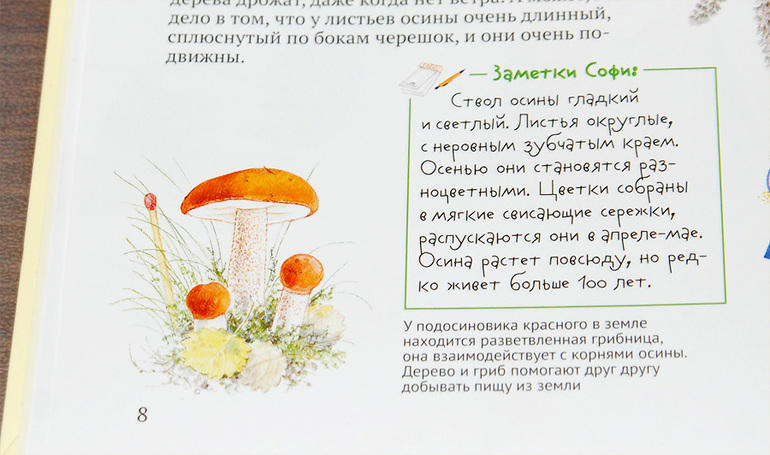 дерева дрожат, даже когда нет ветра.
дело в том, что у листьев осины очень длинный,
сплюснутый по бокам черешок, и они очень по-
движны.
Заметки Софи:
Ствол осины гладкий
и светлый. Листья округлые,
с неровным зубчатым краем.
Осенью они становятся раз-
ноцветными. Цветки собраны
в мягкие свисающие сережки,
распускаются они в апреле-мае.
Осина растет повсюду, но ред-
ко живет больше 100 лет.
У подосиновика красного в земле
находится разветвленная грибница,
она взаимодействует с корнями осины.
Дерево и гриб помогают друг другу
добывать пищу из земли
8